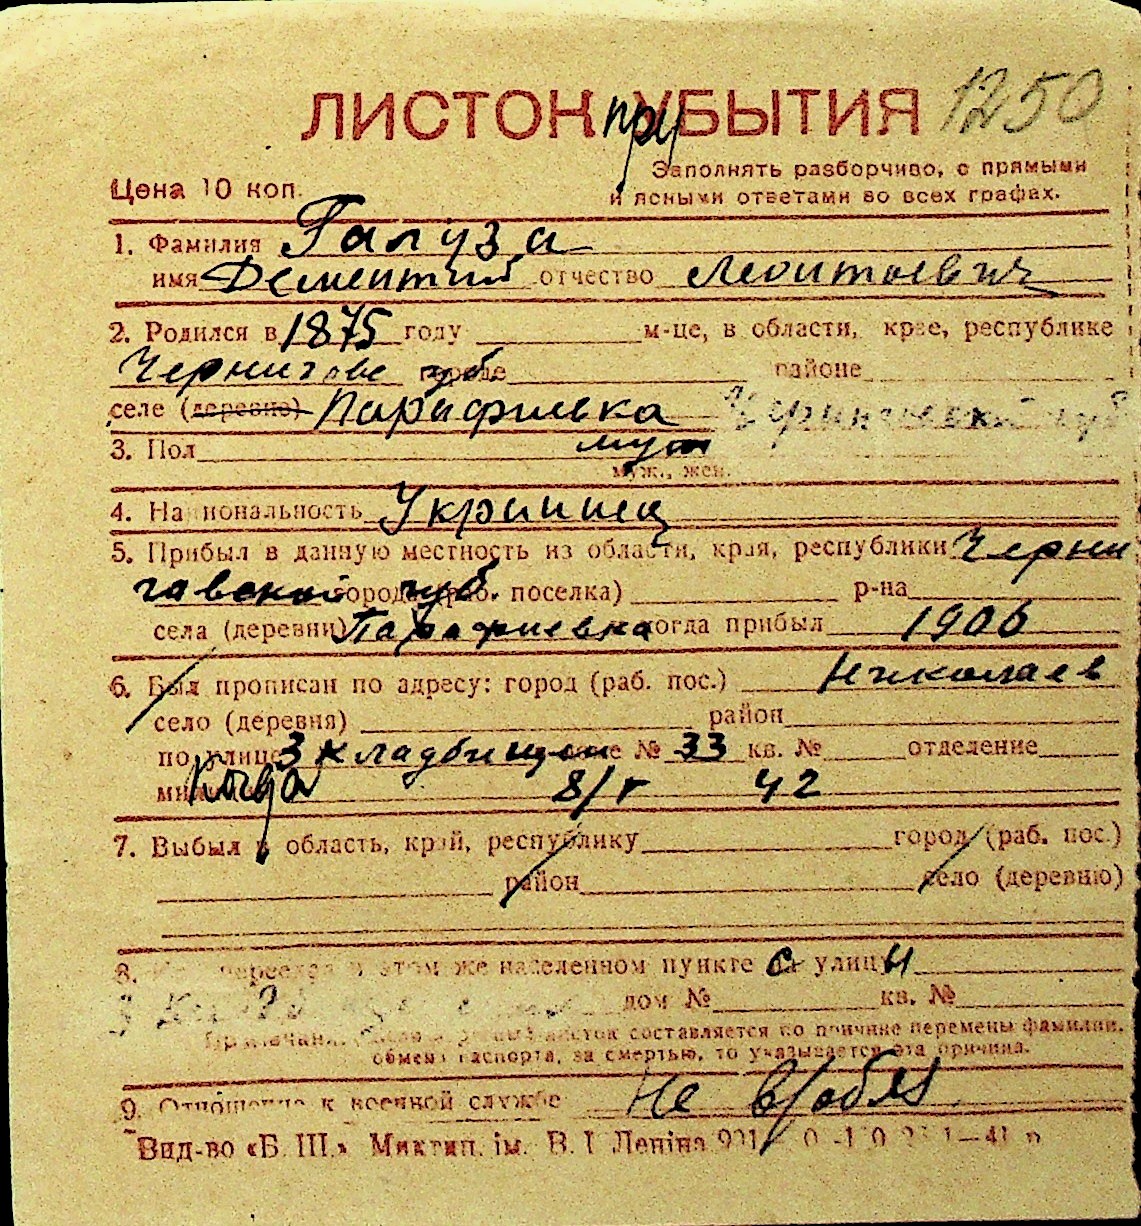 ЛИСТОК приУБЫТИЯ 1250
Цена 10 коп.
Заполнять разборчиво, с прямыми
и ясными ответами во всех графах.
1. Фамилия Галуза
имя Дементий отчество Леонтьевич
2. Родился в 1875 году м-це, в области, крае, республике
Чернигове губ. городе районе
селе (деревне) Парафиевка Черниговской губ
3. Пол муж
муж., жен.
4. Национальность Украинец
5. Прибыл в данную местность из области, края, республики Черни
говской губ. города (раб. поселка) р-на
села (деревни) Парафиевка когда прибыл 1906
6. Был прописан по адресу: город (раб. пос.) Николаев
село (деревня) район
по улице 3 кладбищен № 33 кв. № отделение
когда 8/V 42
7. Выбыл в область, край, республику город (раб. пос.)
район село (деревню)
8. переехал в этом же населенном пункте с улицы
3 дом № кв. №
составляется по причине перемены фамилии,
обмена паспорта, за смертью, то указывается эта причина.
9. Отношение к военной службе не в/обяз
Вид-во «Б. Ш.» Миктип. ім. В. І Леніна